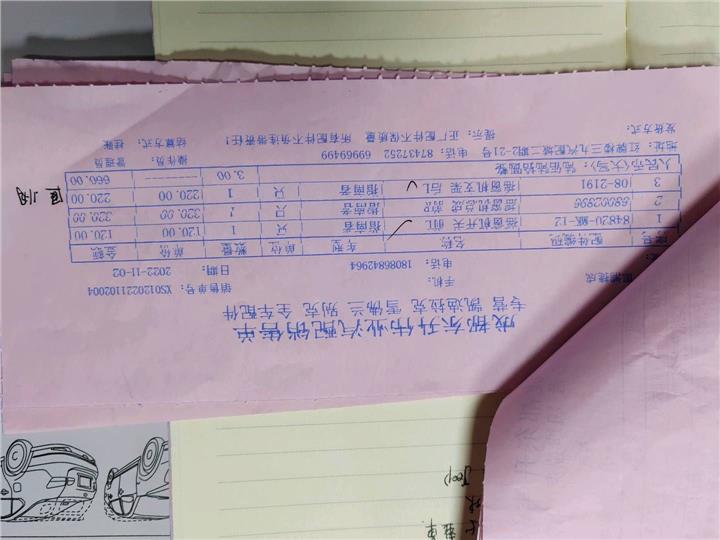 成都东升伟业汽配销售单
专营 凯迪拉克 雪佛兰 别克 全车配件
捷成 手机: 销售单号: XS0120221102004
电话: 18086842964 日期: 2022-11-02
编号 配件编码 名称 车型 单位 数量 单价 金额
1 84820-MK-12 摇窗机开关 前L 指南者 只 1 120.00 120.00
2 68002896 摇窗机总成 指南者 只 1 320.00 320.00
3 08-2191 摇窗机支架 后L 指南者 只 1 220.00 220.00
人民币(大写): 陆佰陆拾圆整 3.00 ------ 660.00
地址: 红牌楼三九汽配城二期2-21号 电话: 87437252 69969499 操作员: 管理员
发货方式: 提示: 正厂配件不保质量 所有配件不负连带责任! 结算方式: 挂账
Jeep